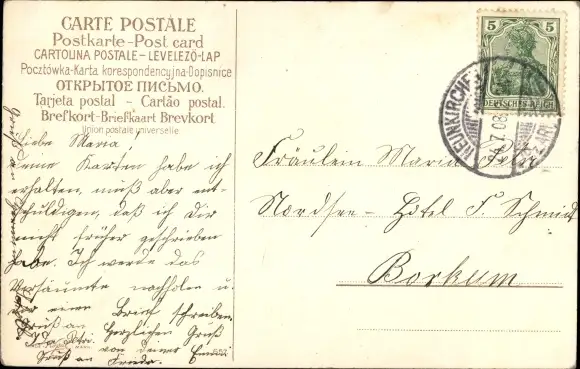 CARTE POSTALE
Postkarte-Post card
CARTOLINA POSTALE-LEVELEZŐ-LAP
Pocztówka-Karta korespondencyjna-Dopisnice
ОТКРЫТОЕ ПИСЬМО.
Tarjeta postal - Cartão postal.
Brefkort-Briefkaart Brevkort
Union postale universelle
5 5
DEUTSCHES REICH
NEUNKIRCHEN
7.08
Liebe Maria!
Deine Karten habe ich
erhalten, muß aber ent-
schuldigen, daß ich Dir
nicht früher geschrieben
habe. Ich werde das
Versäumte nachholen u.
Dir einen Brief schreiben.
Gruß an Herzlichen Gruß
von deiner Emmi
Gruß an Frieda.
Fräulein Maria
Nordsee-Hotel F. Schmidt
Borkum